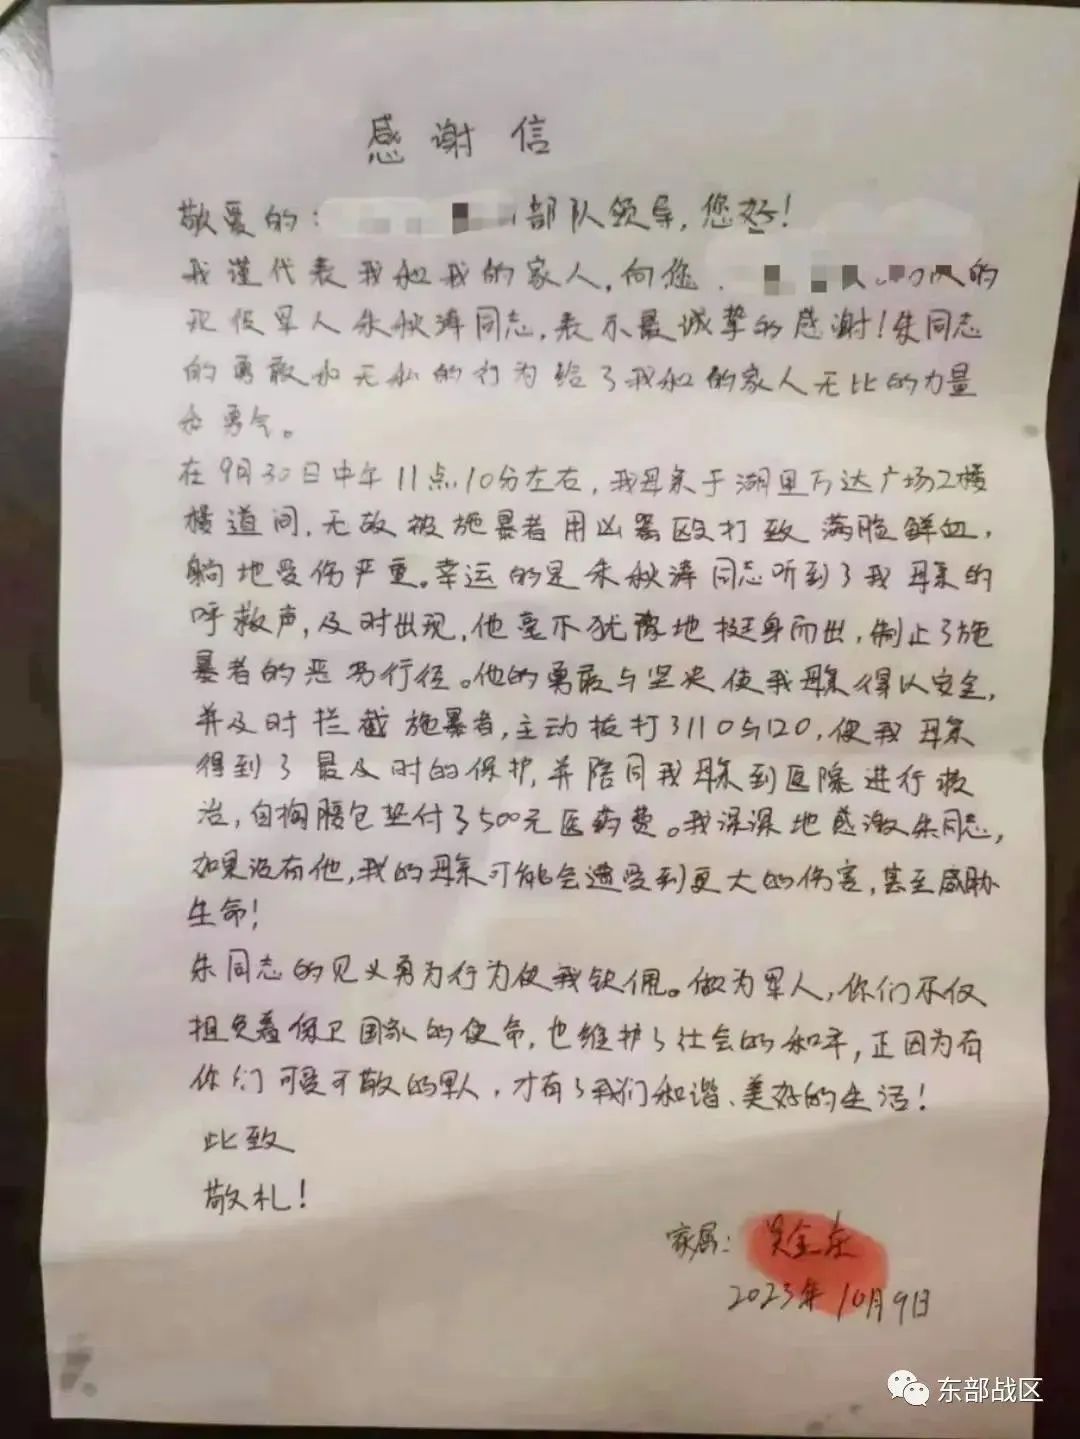 感谢信
敬爱的：部队领导，您好！
我谨代表我和我的家人，向您的
现役军人朱秋涛同志，表示最诚挚的感谢！朱同志
的勇敢和无私的行为给了我和的家人无比的力量
和勇气。
在9月30日中午11点10分左右，我母亲于湖里万达广场2楼
楼道间，无故被施暴者用凶器殴打致满脸鲜血，
躺地受伤严重。幸运的是朱秋涛同志听到了我母亲的
呼救声，及时出现，他毫不犹豫地挺身而出，制止了施
暴者的恶劣行径。他的勇敢与坚决使我母亲得以安全，
并及时拦截施暴者，主动拔打了110与120，使我母亲
得到了最及时的保护，并陪同我母亲到医院进行救
治，自掏腰包垫付了500元医药费。我深深地感激朱同志，
如果没有他，我的母亲可能会遭受到更大的伤害，甚至威胁
生命！
朱同志的见义勇为行为使我钦佩。做为军人，你们不仅
担负着保卫国家的使命，也维护了社会的和平，正因为有
你们可爱可敬的军人，才有了我们和谐、美好的生活！
此致
敬礼！
家属：吴金
2023年10月9日
东部战区